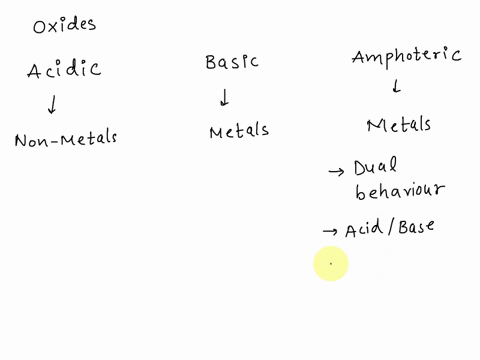 Oxides
Acidic
↓
Non-Metals
Basic
↓
Metals
Amphoteric
↓
Metals
→ Dual
behaviour
→ Acid/Base